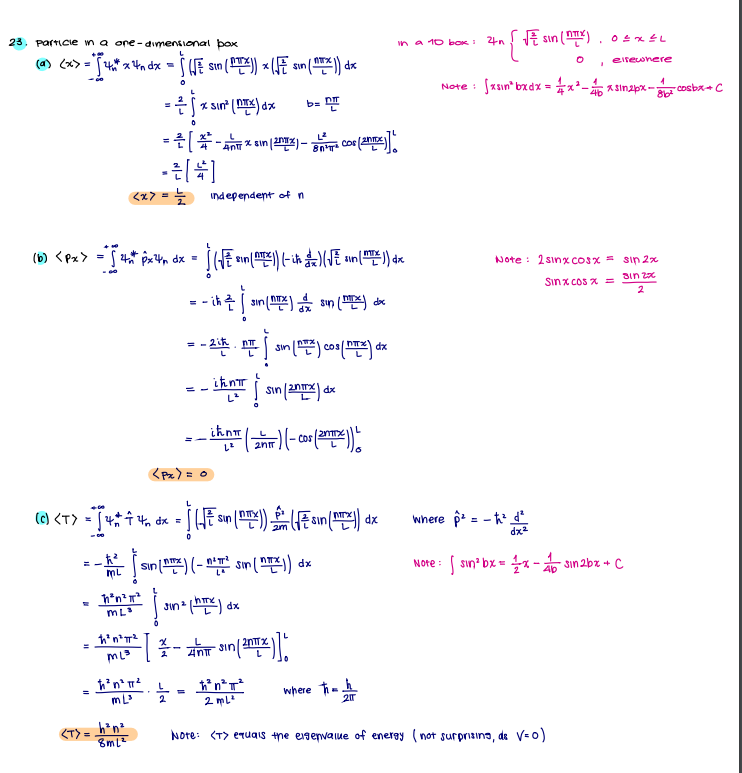 23. Particle in a one-dimensional box
in a 1D box: ψn { √(2/L) sin(nπx/L), 0 ≤ x ≤ L
0, elsewhere
(a) <x> = ∫_{-∞}^{+∞} ψn* x ψn dx = ∫_0^L (√(2/L) sin(nπx/L)) x (√(2/L) sin(nπx/L)) dx
Note: ∫xsin²bxdx = 1/4 x² - 1/4b x sin2bx - 1/8b² cosbx + C
= 2/L ∫_0^L x sin²(nπx/L) dx b = nπ/L
= 2/L [x²/4 - L/4nπ x sin(2nπx/L) - L²/8n²π² cos(2nπx/L)]_0^L
= 2/L [L²/4]
<x> = L/2 independent of n
(b) <Px> = ∫_{-∞}^{+∞} ψn* p̂x ψn dx = ∫_0^L (√(2/L) sin(nπx/L)) (-iħ d/dx) (√(2/L) sin(nπx/L)) dx
Note: 2sinxcosx = sin2x
sinxcosx = sin2x/2
= -iħ 2/L ∫_0^L sin(nπx/L) d/dx sin(nπx/L) dx
= - 2iħ/L · nπ/L ∫_0^L sin(nπx/L) cos(nπx/L) dx
= - iħnπ/L² ∫_0^L sin(2nπx/L) dx
= - iħnπ/L² (L/2nπ) (-cos(2nπx/L))_0^L
<Px> = 0
(c) <T> = ∫_{-∞}^{+∞} ψn* T̂ ψn dx = ∫_0^L (√(2/L) sin(nπx/L)) p̂²/2m (√(2/L) sin(nπx/L)) dx where p̂² = -ħ² d²/dx²
= - ħ²/mL ∫_0^L sin(nπx/L) (- n²π²/L² sin(nπx/L)) dx
Note: ∫ sin²bx = 1/2 x - 1/4b sin2bx + C
= ħ²n²π²/mL³ ∫_0^L sin²(nπx/L) dx
= ħ²n²π²/mL³ [x/2 - L/4nπ sin(2nπx/L)]_0^L
= ħ²n²π²/mL³ · L/2 = ħ²n²π²/2mL² where ħ = h/2π
<T> = h²n²/8mL² Note: <T> equals the eigenvalue of energy (not surprising, as V=0)